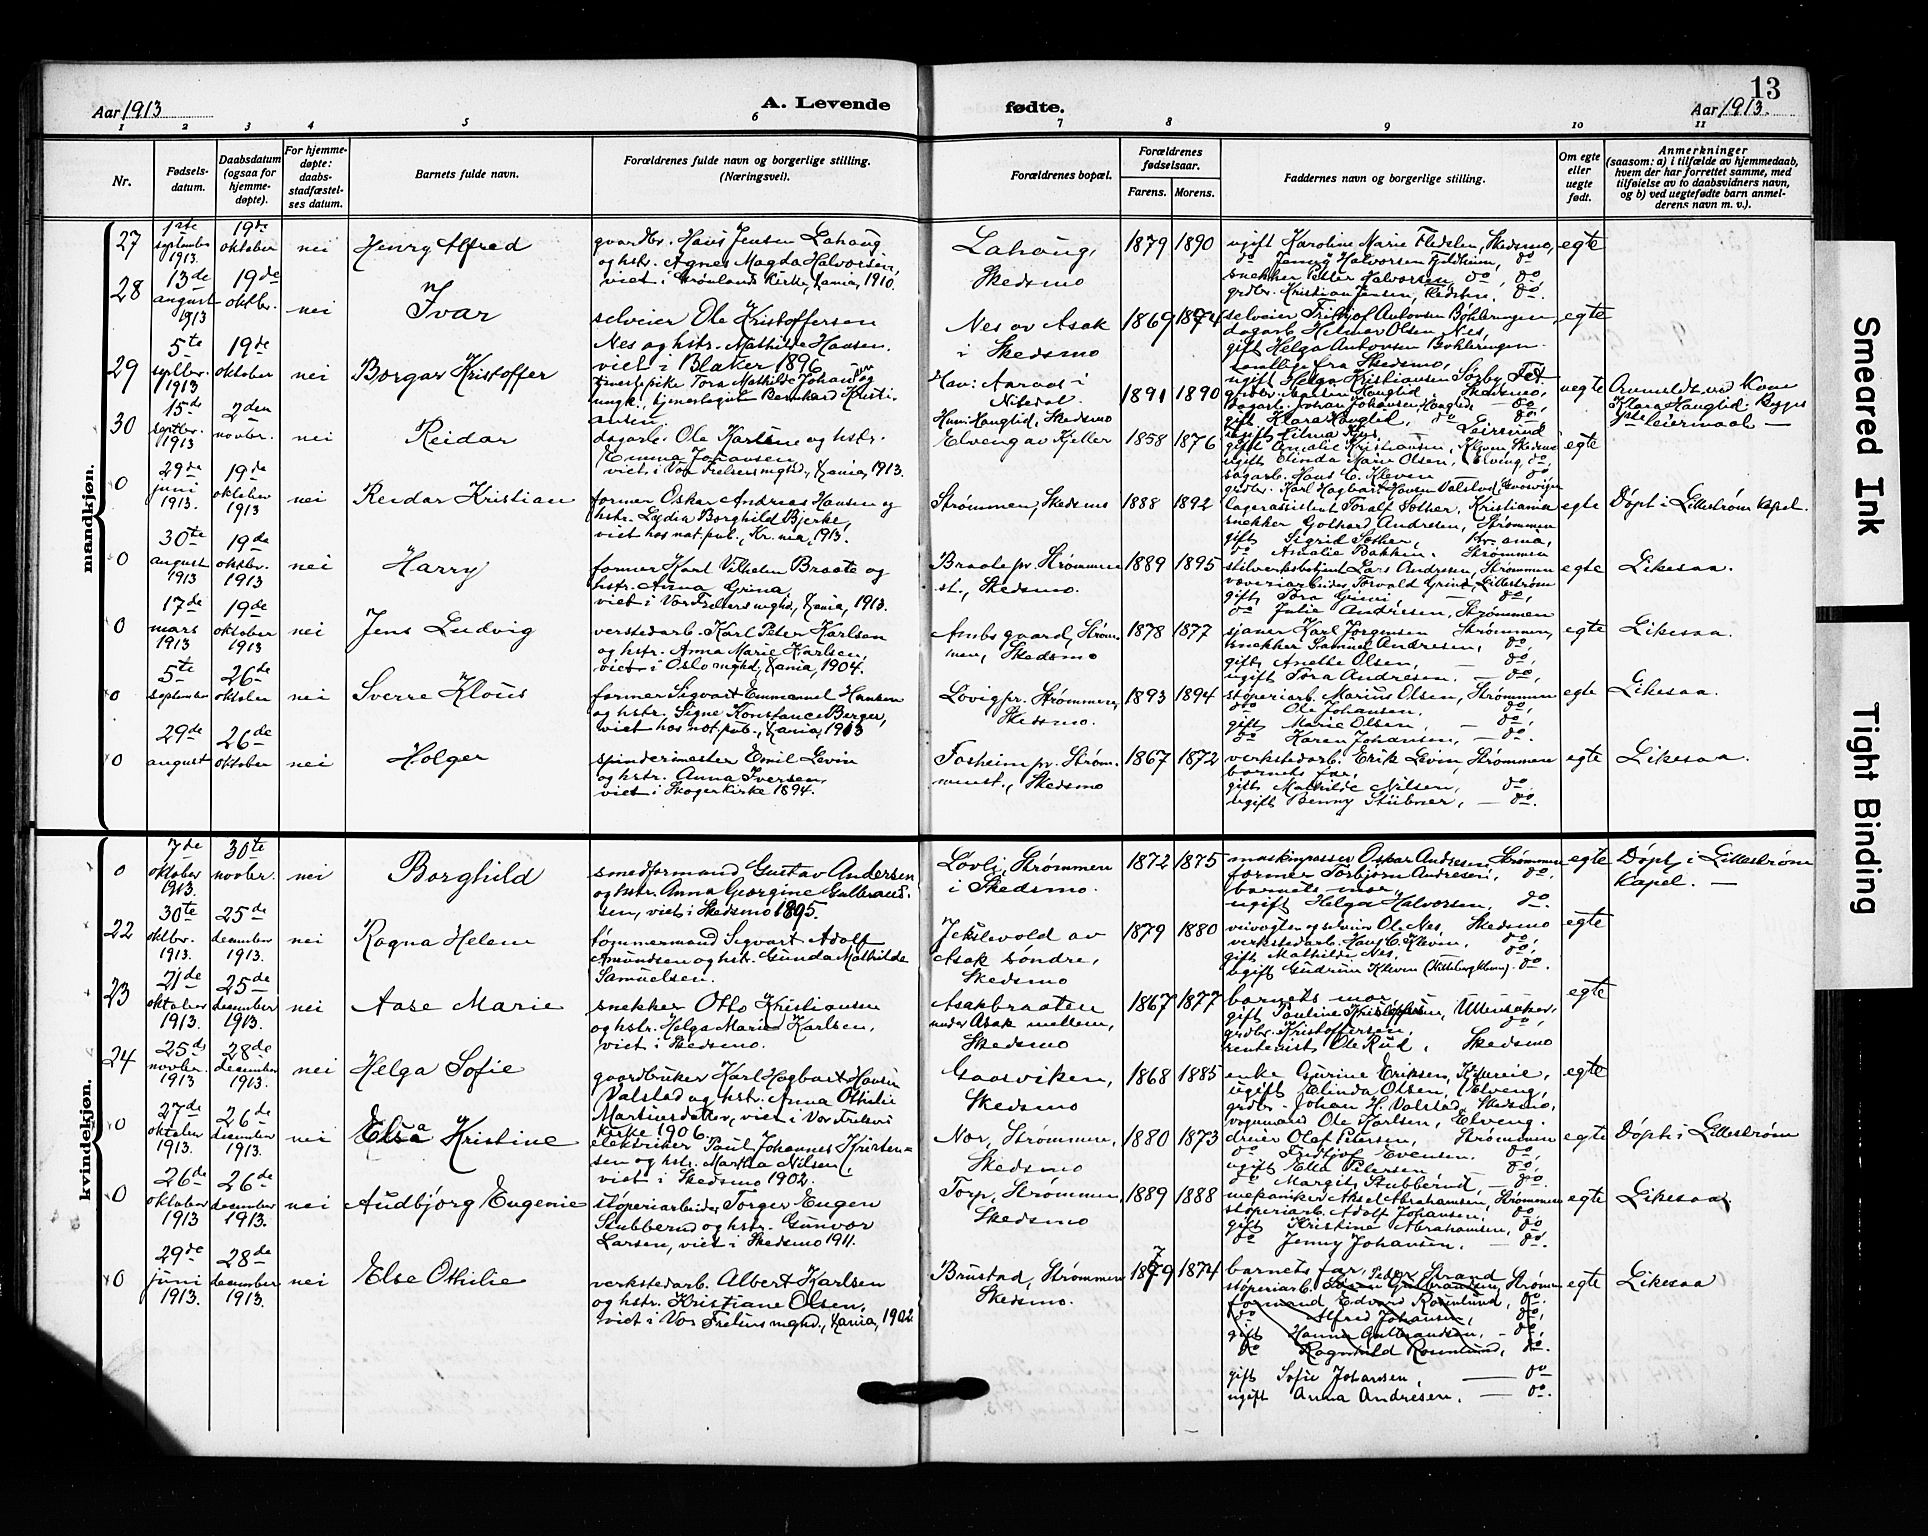 13
Aar 1913
A. Levende
fødte.
Aar 1913.
1 2 3 4 5 6 7 8 9 10 11
Nr.
Fødsels-
datum.
Daabsdatum
(ogsaa for
hjemme-
døpte).
For hjemme-
døpte:
daabs-
stadfæstel-
ses datum.
Barnets fulde navn.
Forældrenes fulde navn og borgerlige stilling.
(Næringsvei).
Forældrenes bopæl.
Forældrenes
fødselsaar.
Farens. Morens.
Faddernes navn og borgerlige stilling.
Om egte
eller
uegte
født.
Anmerkninger
(saasom: a) i tilfælde av hjemmedaab,
hvem der har forrettet samme, med
tilføielse av to daabsvidners navn,
og b) ved uegtefødte barn anmel-
derens navn m. v.).
mandkjøn.
27
1ste
september
1913.
19de
oktober
nei
Henry Alfred
gaardbr. Hans Jensen Lahaug
og hstr. Agnes Magda Halvorsen,
viet i Grønlands Kirke, Xania, 1910.
Lahaug,
Skedsmo
1879 1890
ugift Karoline Marie Flodelen, Skedsmo,
do Jenny Halvorsen Fjeldheim, do
snekker Petter Halvorsen, do, do
grdbr. Kristian Jensen, do.
egte
28
13de
august
1913
19de
oktbr.
nei
Ivar
selveier Ole Kristoffersen
Nes og hstr. Mathilde Hansen.
viet i Blaker 1896
Nes av Asak
i Skedsmo
1869 1874
selveier Fritjof Antonsen Bøhleringen,
dagarb. Helmer Olsen Nes,
gift Helga Antonsen Bøhleringen.
samtlige fra Skedsmo,
egte
29
5te
septbr.
1913
19de
oktober
nei
Borgar Kristoffer
tjenestepike Tora Mathilde Johansen og
ungk., tjenestegut Bernhard Kristi-
ansen
Hav: Aaraas i
Nitedal.
Hun: Hauglid, Skedsmo
1891 1890
ugift Helga Kristiansen Sørby, Fet.
grdbr. Hauglid, Skedsmo,
dagarb. Johan Johansen Hauglid, do,
gift Klara Hauglid, do
uegte
Anmeldt ved Kone
Klara Hauglid. Begges
1ste Leiermaal —
30
15de
septbr.
1913
2den
novbr.
nei
Reidar
dagarb. Ole Karlsen og hstr.
Emma Johansen
viet i Vor Frelsers mghd, Xania, 1913.
Elveng av Kjeller
1858 1876
gift Amalie Kristiansen, Kleven, Skedsmo
ugift Elinda Marie Olsen, Elveng, do,
sagarb. Hans C. Kleven do
grdbr. Karl Hagbart Hansen Valstad, Gaasviken
egte
0
29de
juni
1913.
19de
oktober
1913
nei
Reidar Kristian
former Oskar Andreas Hansen og
hstr. Lydia Borghild Bjerke,
viet hos not. pub., Kr.nia, 1913.
Strømmen, Skedsmo
1888 1892
lagerassistent Toralf Sæther, Kristiania
snekker Gothard Andresen, Strømmen
gift Sigrid Sæther, Kr.ania,
do Amalie Bakken. Strømmen
egte
Døpt i Lillestrøm Kapel.
0
30te
august
1913
19de
oktober.
1913
nei
Harry
former Karl Vilhelm Braate og
hstr. Anna Grina,
viet i Vor Frelsers mghd, Xania, 1913.
Braate pr. Strømmen
st., Skedsmo.
1889 1895
stilverksbetjent Lars Andresen, Strømmen
væveriarbeider Torvald Grina, Lillestrøm
gift Tora Grini — do,
do Julie Andresen, Strømmen
egte
Likesaa.
0
17de
mars
1913
19de
oktober
1913
nei
Jens Ludvig
verstedarb. Karl Peter Karlsen
og hstr. Anna Marie Karlsen,
viet i Oslo mghd, Xania, 1904.
Ambs gaard, Strøm-
men, Skedsmo
1878 1877
sjauer Karl Jørgensen Strømmen,
snekker Samuel Andresen, do,
gift Anette Olsen, — do,
ugift Tora Andresen. — do,
egte
Likesaa.
0
5te
september
26de
oktober
nei
Sverre Klaus
former Sigvart Emmanuel Hansen
og hstr. Signe Konstance Berger,
viet hos not. pub., Xania, 1913
Lovig pr. Strømmen,
Skedsmo.
1893 1894
støperiarb. Marius Olsen, Strømmen
do Ole Johansen. do,
gift Marie Olsen — do,
do Karen Johansen, — do.
egte
Likesaa.
0
29de
august
26de
oktober
nei
Holger
spindemester Emil Levin
og hstr. Anna Iversen,
viet i Skoger Kirke 1894.
Fosheim pr. Strøm-
menst., Skedsmo
1867 1872
verkstedarb. Erik Levin, Strømmen
barnets far,
gift Mathilde Nilsen, do.
ugift Benny Stübner, — do.
egte
Likesaa.
kvindekjøn.
0
7de
oktober
1913.
30te
novbr.
nei
Borghild
smedformand Gustav Andersen
og hstr. Anna Georgine Gulbrand-
sen, viet i Skedsmo 1895.
Løvli, Strømmen
i Skedsmo.
1872 1875
maskinpasser Oskar Andresen, Strømmen
former Torbjørn Andresen, do.
barnets mor,
ugift Helga Halvorsen, do.
egte
Døpt i Lillestrøm
Kapel. —
22
30te
oktbr.
1913.
25de
desember
1913.
nei
Ragna Helene
tømmermand Sigvart Adolf
Amundsen og hstr. Gunda Mathilde
Samuelsen.
Jekslevold av
Asak søndre,
Skedsmo
1879 1880
veivogter og selveier Ole Nes, Skedsmo
verkstedarb. Hans C. Kleven, do,
gift Mathilde Nes, do.
ugift Gudrun Kleven do.
egte
23
21de
oktober
1913.
25de
desember
1913.
nei
Aase Marie
snekker Otto Kristiansen
og hstr. Helga Marie Karlsen,
viet i Skedsmo.
Asakbraaten
under Asak mellem,
Skedsmo
1867 1877
barnets mor,
gift Pauline Kristoffersen, Ullensaker,
grdbr. Kristoffersen, do,
rentenist Ole Rud, Skedsmo
egte
24
25de
novbr.
1913
28de
desember
1913.
nei
Helga Sofie
gaardbruker Karl Hagbart Hansen
Valstad og hstr. Anna Othilie
Martinsdatter, viet i Vor Frelsers
Kirke 1906.
Gaasviken,
Skedsmo
1868 1885
enke Gurine Eriksen,
ugift Elinda Olsen, Elveng,
grdbr. Johan H. Valstad, Skedsmo,
vognmand Ole Karlsen, Elveng.
egte
0
27de
oktober
1913.
26de
desember
1913.
nei
Elsa Kristine
elektriker Paul Johannes Kristen-
sen og hstr. Martha Nilsen,
viet i Skedsmo 1902.
Nor, Strømmen,
Skedsmo
1880 1873
dreier Olaf Petersen, Strømmen
do Fridtjof Evensen. do,
ugift Ella Petersen — do,
do Margit Stubberud — do.
egte
Døpt i Lillestrøm
0
26de
oktober
1913
26de
desember
1913.
nei
Audbjørg Eugenie
støperiarbeider Torger Eugen
Stubberud og hstr. Gunvor
Larsen, viet i Skedsmo 1911.
Torp, Strømmen,
Skedsmo
1889 1888
mekaniker Aksel Abrahamsen, Strømmen
støperiarb. Adolf Johansen, do,
gift Kristine Abrahamsen, do,
do Jenny Johansen. — do.
egte
Likesaa
0
29de
juni
1913.
28de
desember
1913.
nei
Else Othilie
verkstedarb. Albert Karlsen
og hstr. Kristiane Olsen,
viet i Vor Frelsers mghd., Xania, 1902
Brustad, Strømmen
Skedsmo.
1879 1874
barnets far, Peder Strand
støperiarb. Gulbrandsen, Strømmen
formand Edvard Rosenlund, do.
do Alfred Johansen, do,
gift Hanna Gulbrandsen, — do,
do Ragnhild Rosenlund, do.
gift Sofie Johansen, — do
ugift Anna Andresen, — do.
egte
Likesaa
Smeared Ink
Tight Binding